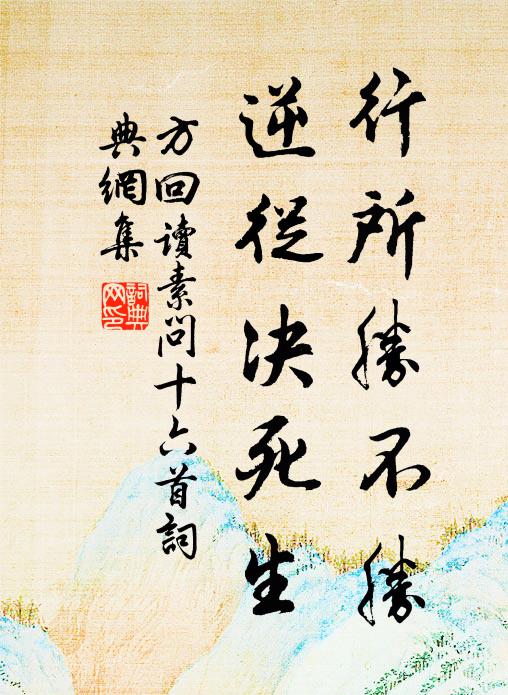 行所勝不勝
逆從決死生
方回讀素問十六首詞
典網集
詞典
网印